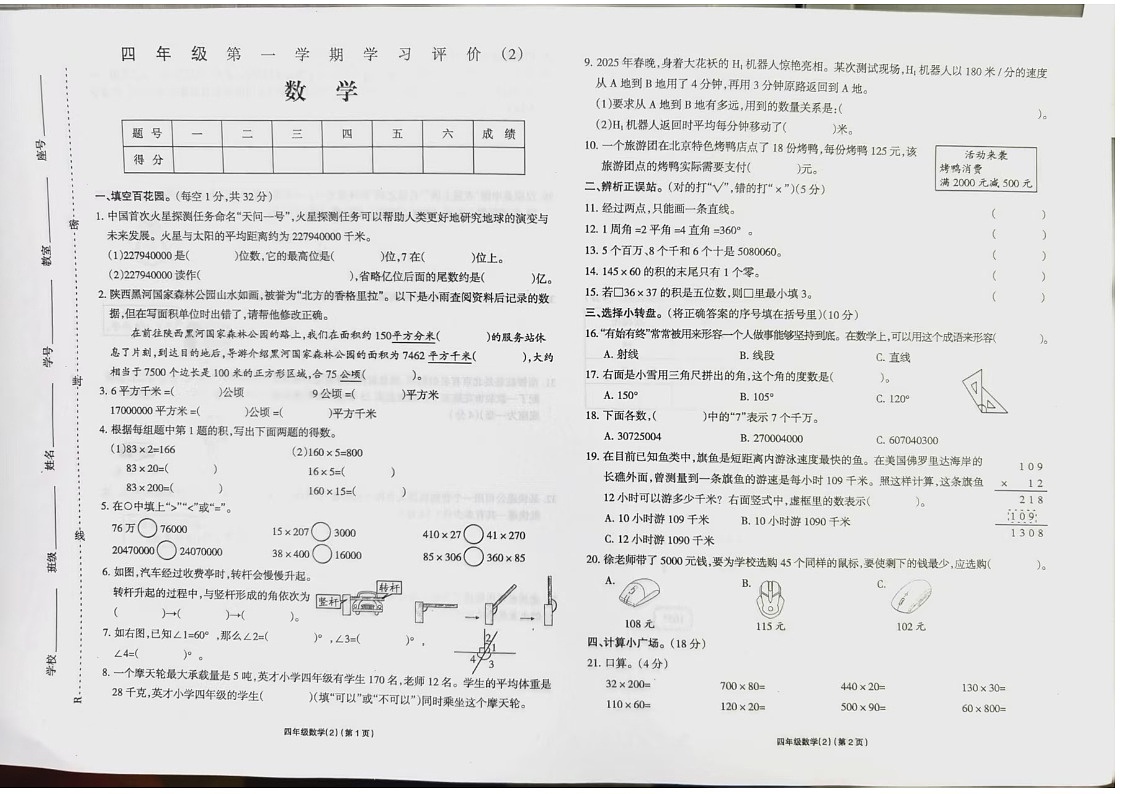 四年级第一学期学习评价(2)
数学
题号 一 二 三 四 五 六 成绩
得分
座号
教室
学号
姓名
班级
学校
密
封
线
R
一、填空百花园。(每空1分,共32分)
1. 中国首次火星探测任务命名“天问一号”,火星探测任务可以帮助人类更好地研究地球的演变与
未来发展。火星与太阳的平均距离约为227940000千米。
(1)227940000是( )位数,它的最高位是( )位,7在( )位上。
(2)227940000读作( ),省略亿位后面的尾数约是( )亿。
2. 陕西黑河国家森林公园山水如画,被誉为“北方的香格里拉”。以下是小雨查阅资料后记录的数
据,但在写面积单位时出错了,请帮他修改正确。
在前往陕西黑河国家森林公园的路上,我们在面积约150平方分米( )的服务站休
息了片刻,到达目的地后,导游介绍黑河国家森林公园的面积为7462平方千米( ),大约
相当于7500个边长是100米的正方形区域,合75公顷( )。
3. 6平方千米=( )公顷 9公顷=( )平方米
17000000平方米=( )公顷=( )平方千米
4. 根据每组题中第1题的积,写出下面两题的得数。
(1)83×2=166 (2)160×5=800
83×20=( ) 16×5=( )
83×200=( ) 160×15=( )
5. 在○中填上“>”“<”或“=”。
76万○76000 15×207○3000 410×27○41×270
20470000○24070000 38×400○16000 85×306○360×85
6. 如图,汽车经过收费亭时,转杆会慢慢升起。
转杆升起的过程中,与竖杆形成的角依次为
( )→( )→( )。
竖杆 转杆
7. 如右图,已知∠1=60°,那么∠2=( )°,∠3=( )°,
∠4=( )°。
2
1
4 3
8. 一个摩天轮最大承载量是5吨,英才小学四年级有学生170名,老师12名。学生的平均体重是
28千克,英才小学四年级的学生( )(填“可以”或“不可以”)同时乘坐这个摩天轮。
四年级数学(2)(第1页)
9. 2025年春晚,身着大花袄的H₁机器人惊艳亮相。某次测试现场,H₁机器人以180米/分的速度
从A地到B地用了4分钟,再用3分钟原路返回到A地。
(1)要求从A地到B地有多远,用到的数量关系是:( )。
(2)H₁机器人返回时平均每分钟移动了( )米。
10. 一个旅游团在北京特色烤鸭店点了18份烤鸭,每份烤鸭125元,该
旅游团点的烤鸭实际需要支付( )元。
活动来袭
烤鸭消费
满2000元减500元
二、辨析正误站。(对的打“√”,错的打“×”)(5分)
11. 经过两点,只能画一条直线。 ( )
12. 1周角=2平角=4直角=360°。 ( )
13. 5个百万、8个千和6个十是5080060。 ( )
14. 145×60的积的末尾只有1个零。 ( )
15. 若□36×37的积是五位数,则□里最小填3。 ( )
三、选择小转盘。(将正确答案的序号填在括号里)(10分)
16. “有始有终”常常被用来形容一个人做事能够坚持到底。在数学上,可以用这个成语来形容( )。
A. 射线 B. 线段 C. 直线
17. 右面是小雪用三角尺拼出的角,这个角的度数是( )。
A. 150° B. 105° C. 120°
18. 下面各数,( )中的“7”表示7个千万。
A. 30725004 B. 270004000 C. 607040300
19. 在目前已知鱼类中,旗鱼是短距离内游泳速度最快的鱼。在美国佛罗里达海岸的
长礁外面,曾测量到一条旗鱼的游速是每小时109千米。照这样计算,这条旗鱼
12小时可以游多少千米?右面竖式中,虚框里的数表示( )。
A. 10小时游109千米 B. 10小时游1090千米
C. 12小时游1090千米
109
× 12
218
109
1308
20. 徐老师带了5000元钱,要为学校选购45个同样的鼠标,要使剩下的钱最少,应选购( )。
A. B. C.
108元 115元 102元
四、计算小广场。(18分)
21. 口算。(4分)
32×200= 700×80= 440×20= 130×30=
110×60= 120×20= 500×90= 60×800=
四年级数学(2)(第2页)